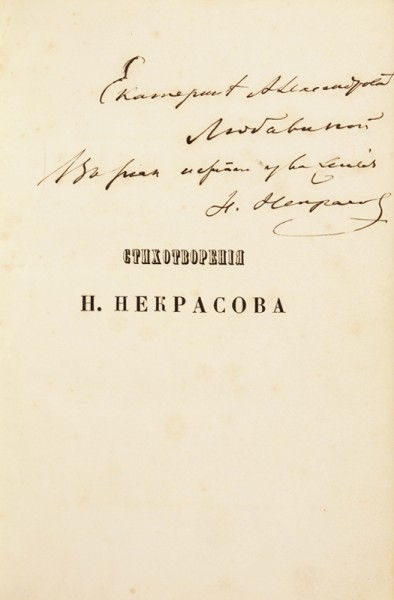 Екатеринѣ Александров
Любавиной
В знак искрен уваженія
Н. Некрасов
СТИХОТВОРЕНІЯ
Н. НЕКРАСОВА